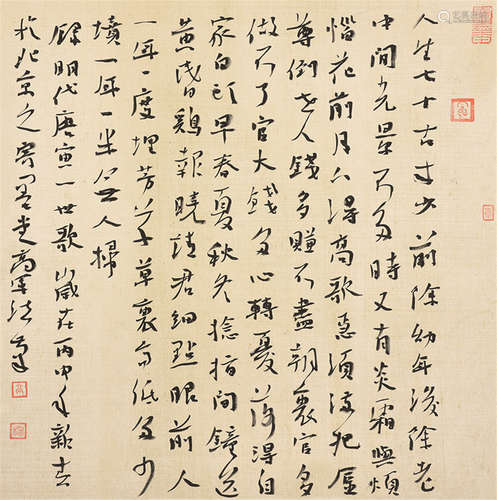 人生七十古来少前除幼年後除老
中間光景不多時又有炎霜與煩
惱花前月下得高歌急須滿把金
尊倒世人錢多賺不盡朝裏官多
做不了官大錢多心轉憂落得自
家白頭早春夏秋冬捻指間鐘送
黃昏鷄報曉請君細點眼前人
一年一度埋芳草草裏高低多少
墳一年一半無人掃
錄明代唐寅一世歌歲在丙申年
於北京之寄墨堂高軍法書